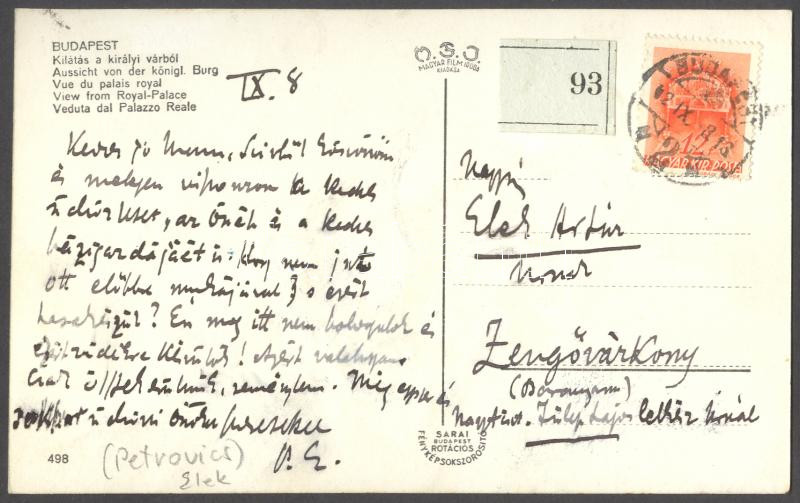 BUDAPEST
Kilátás a királyi várból
Aussicht von der königl. Burg
Vue du palais royal
View from Royal-Palace
Veduta dal Palazzo Reale
IX. 8
M.F.I.
MAGYAR FILM IRODA
KIADÁSA
93
BUDAPEST
IX. 8
MAGYAR KIR. POSTA
Kedves jó Uram, Szívből köszönöm
és melegen viszonzom kedves
üdvözletét, az Önét és a kedves
házigazdájáét is. Hogy nem jut
ott előbbre munkájával, s ezért
? Én meg itt nem boldogulok és
! Azért valahogyan
csak összekerülünk, remélem. Még egyszer és
üdvözli Önöket szeretettel
P. E.
(Petrovics)
Elek
498
Nagys.
Elek Artúr
Úrnak
Zengővárkony
(Baranyam)
Nagytiszt. Fülep Lajos lelkész Úrnál
SARAI
BUDAPEST
ROTÁCIÓS
FÉNYKÉPSOKSZOROSÍTÓ